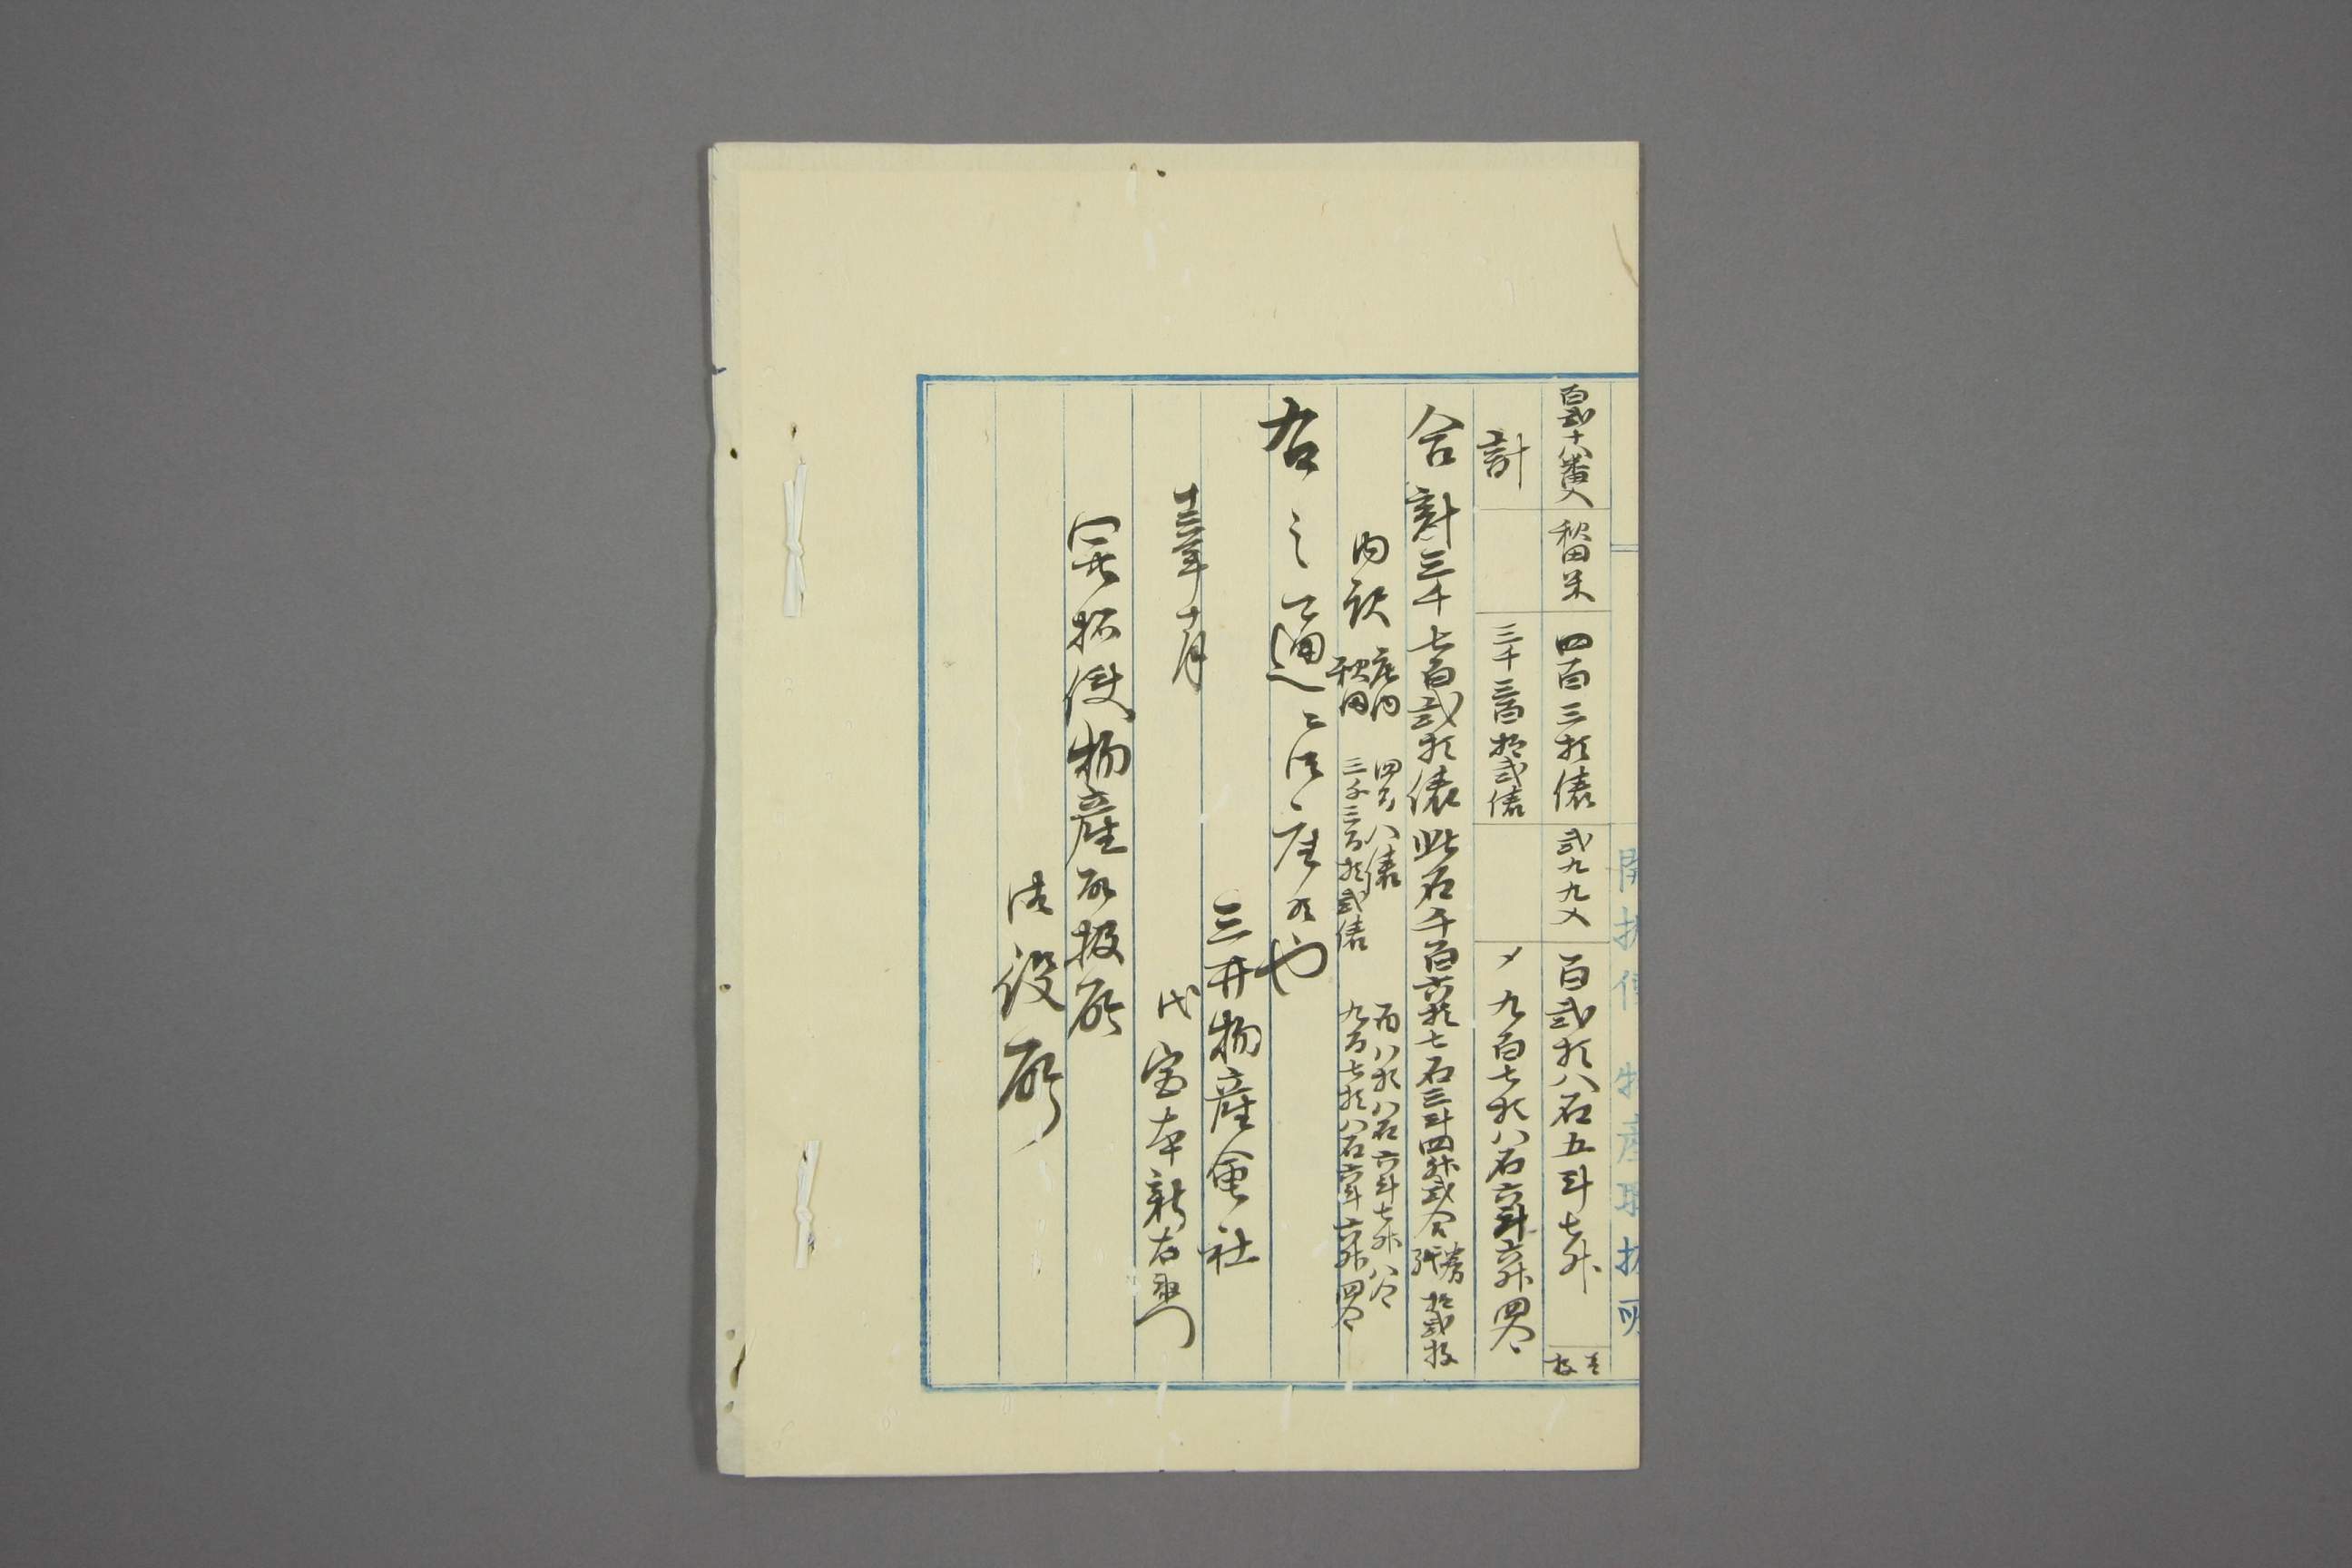 開拓使物産取扱所
百弐十八番入 秋田米 四百三拾俵 弐九九入 百弐拾八石五斗七升 壱枚
計 三千三百拾弐俵 〆九百七拾八石六斗六升四合
合計三千七百弐拾俵此石千百六拾七石三斗四升弐合 券紙拾弐枚
内訳 庄内 四百八俵 百八拾八石六斗七升八合
秋田 三千三百拾弐俵 九百七拾八石六斗六升四合
右之通ニ御座候也
三井物産会社
十三年十月 代 宮本新右衛門
開拓使物産取扱所
御役所